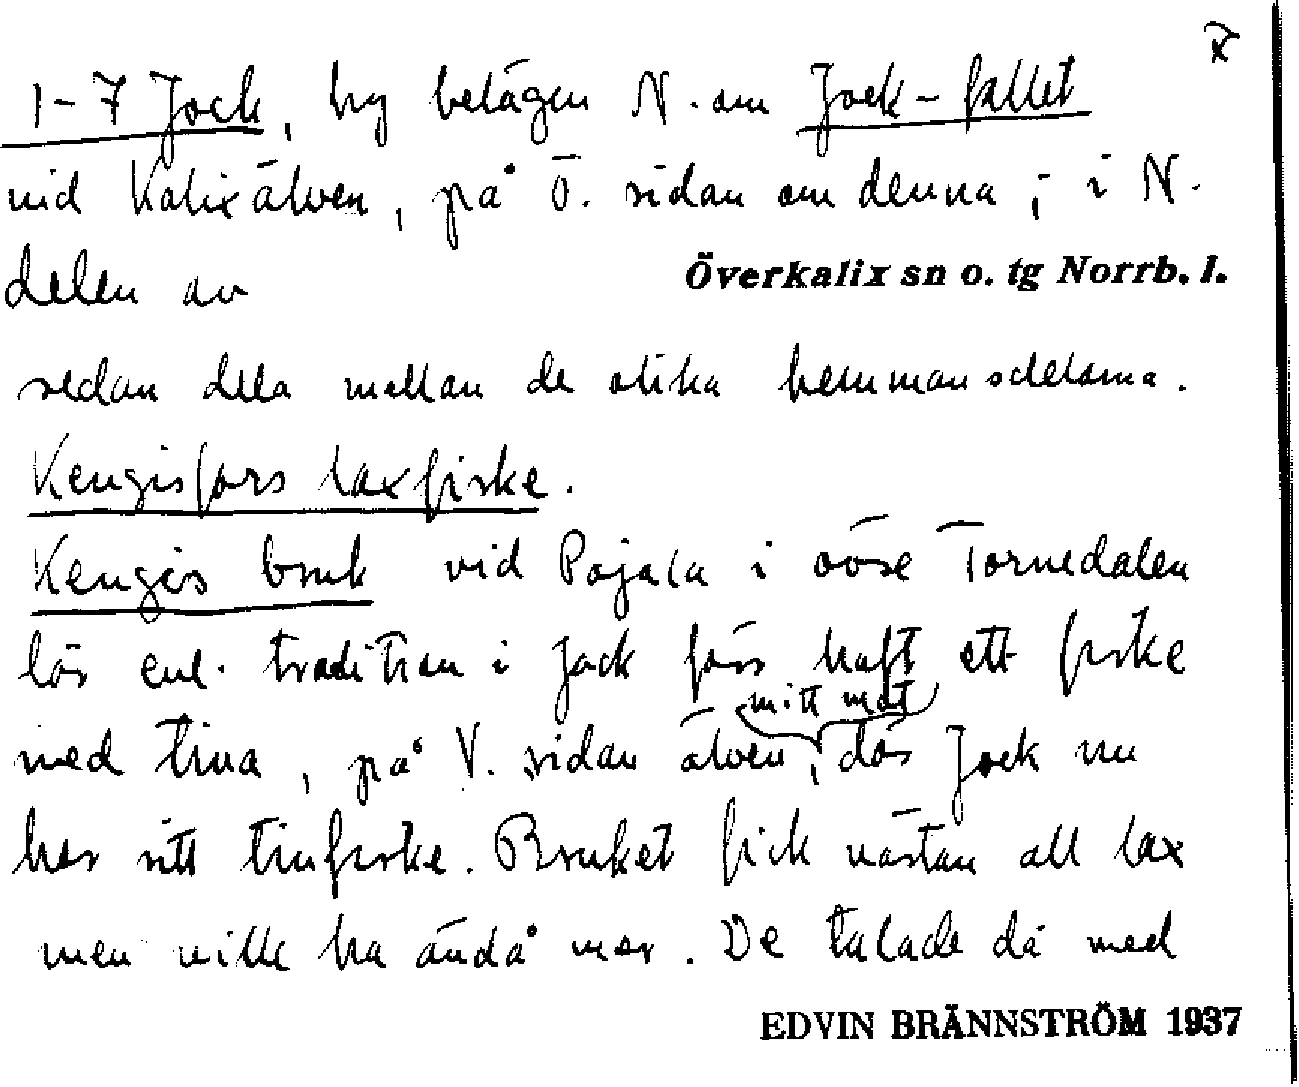 1-7 Jock, by belägen N. om Jock-fallet
vid Kalixälven, på Ö. sidan om denna; i N.
delen av Överkalix sn o. tg Norrb. l.
sedan dela mellan de olika hemmansdelarna.
Kengisfors laxfiske.
Kengis bruk vid Pajala i övre Tornedalen
lär enl. tradition i Jock förr haft ett fiske
mitt mot
med tina, på V. sidan älven, där Jock nu
har sitt tinfiske. Bruket fick nästan all lax
men ville ha ändå mer. De talade då med
EDVIN BRÄNNSTRÖM 1937